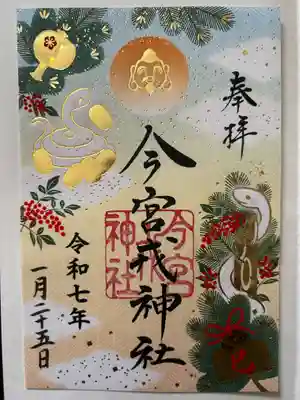 奉拝
今宮戎神社
今宮戎
神社
令和七年
一月二十五日